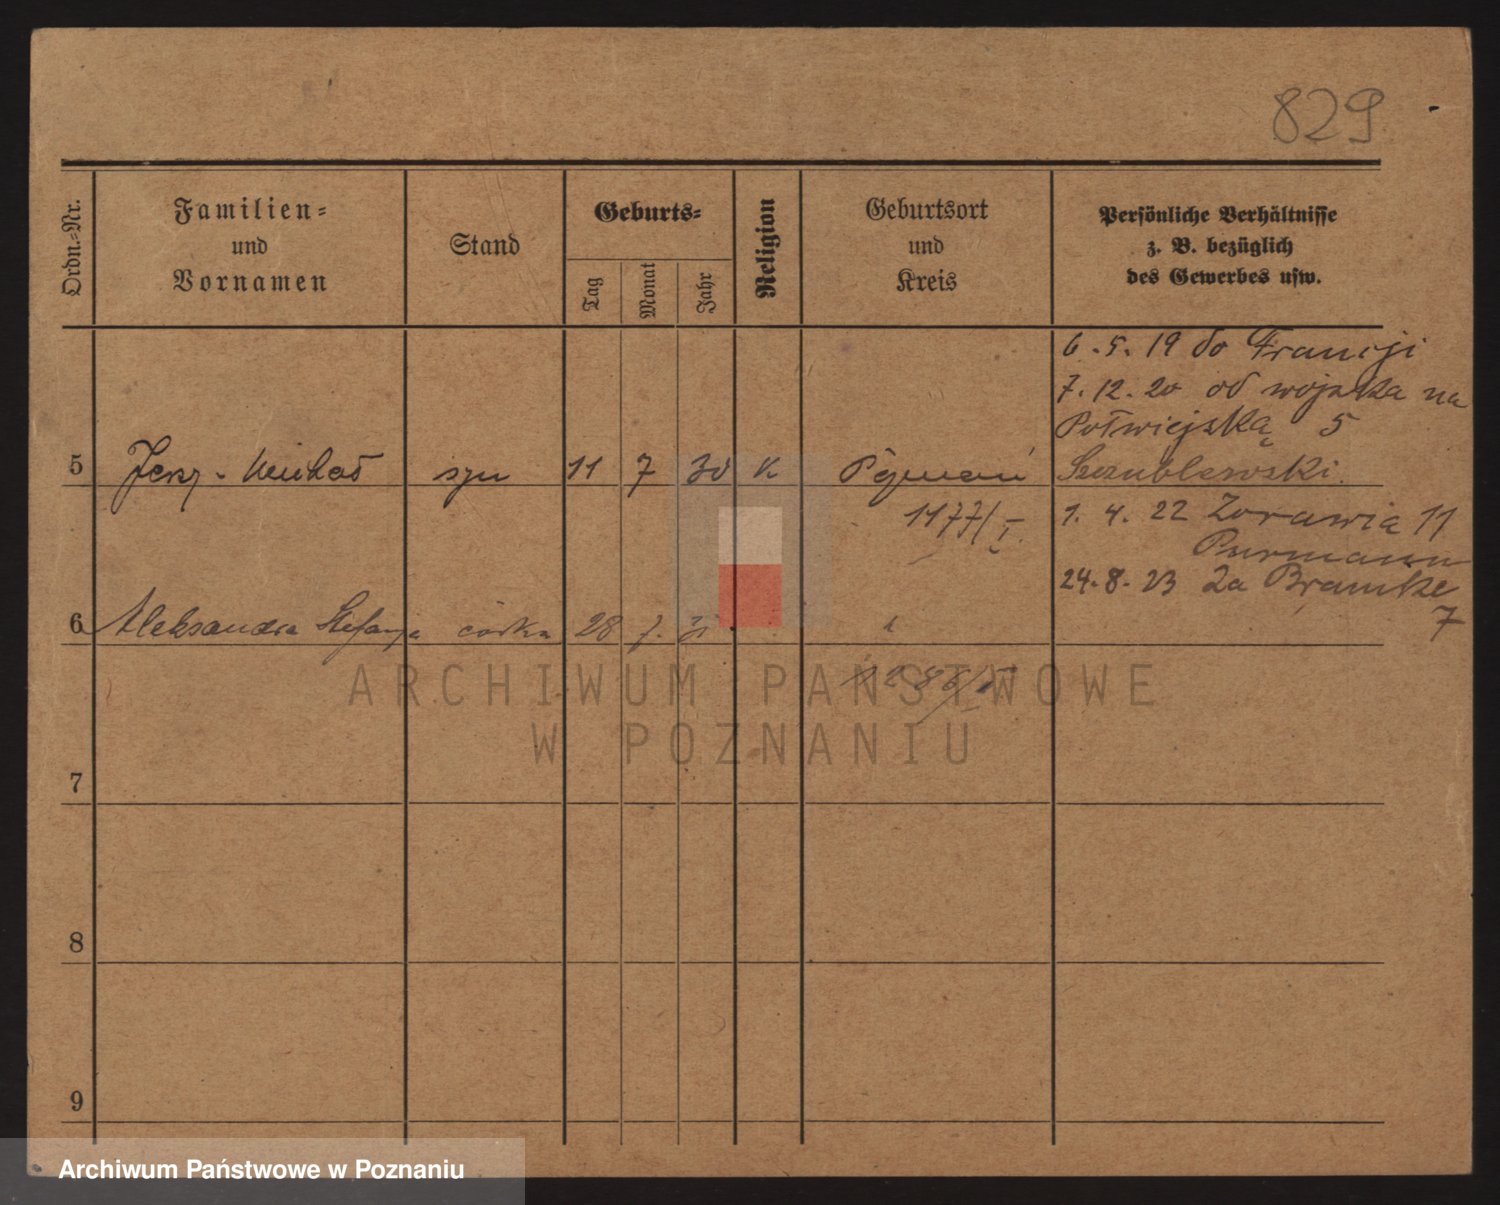 829
Ordn.-Nr.
Familien-
und
Vornamen
Stand
Geburts-
Tag
Monat
Jahr
Religion
Geburtsort
und
Kreis
Persönliche Verhältnisse
z. B. bezüglich
des Gewerbes usw.
6.5.19 do Francji
7.12.20 od wojska na
Półwiejską 5
5 Jerzy - Michał syn 11 7 30 K Poznań Szczublewski.
1177/I. 1.4.22 Żorawia 11
Purmann
24.8.23 Za Bramką
7
6 Aleksandra Stefanja córka 28 7.
ARCHIWUM PAŃSTWOWE
W POZNANIU
7
8
9
Archiwum Państwowe w Poznaniu